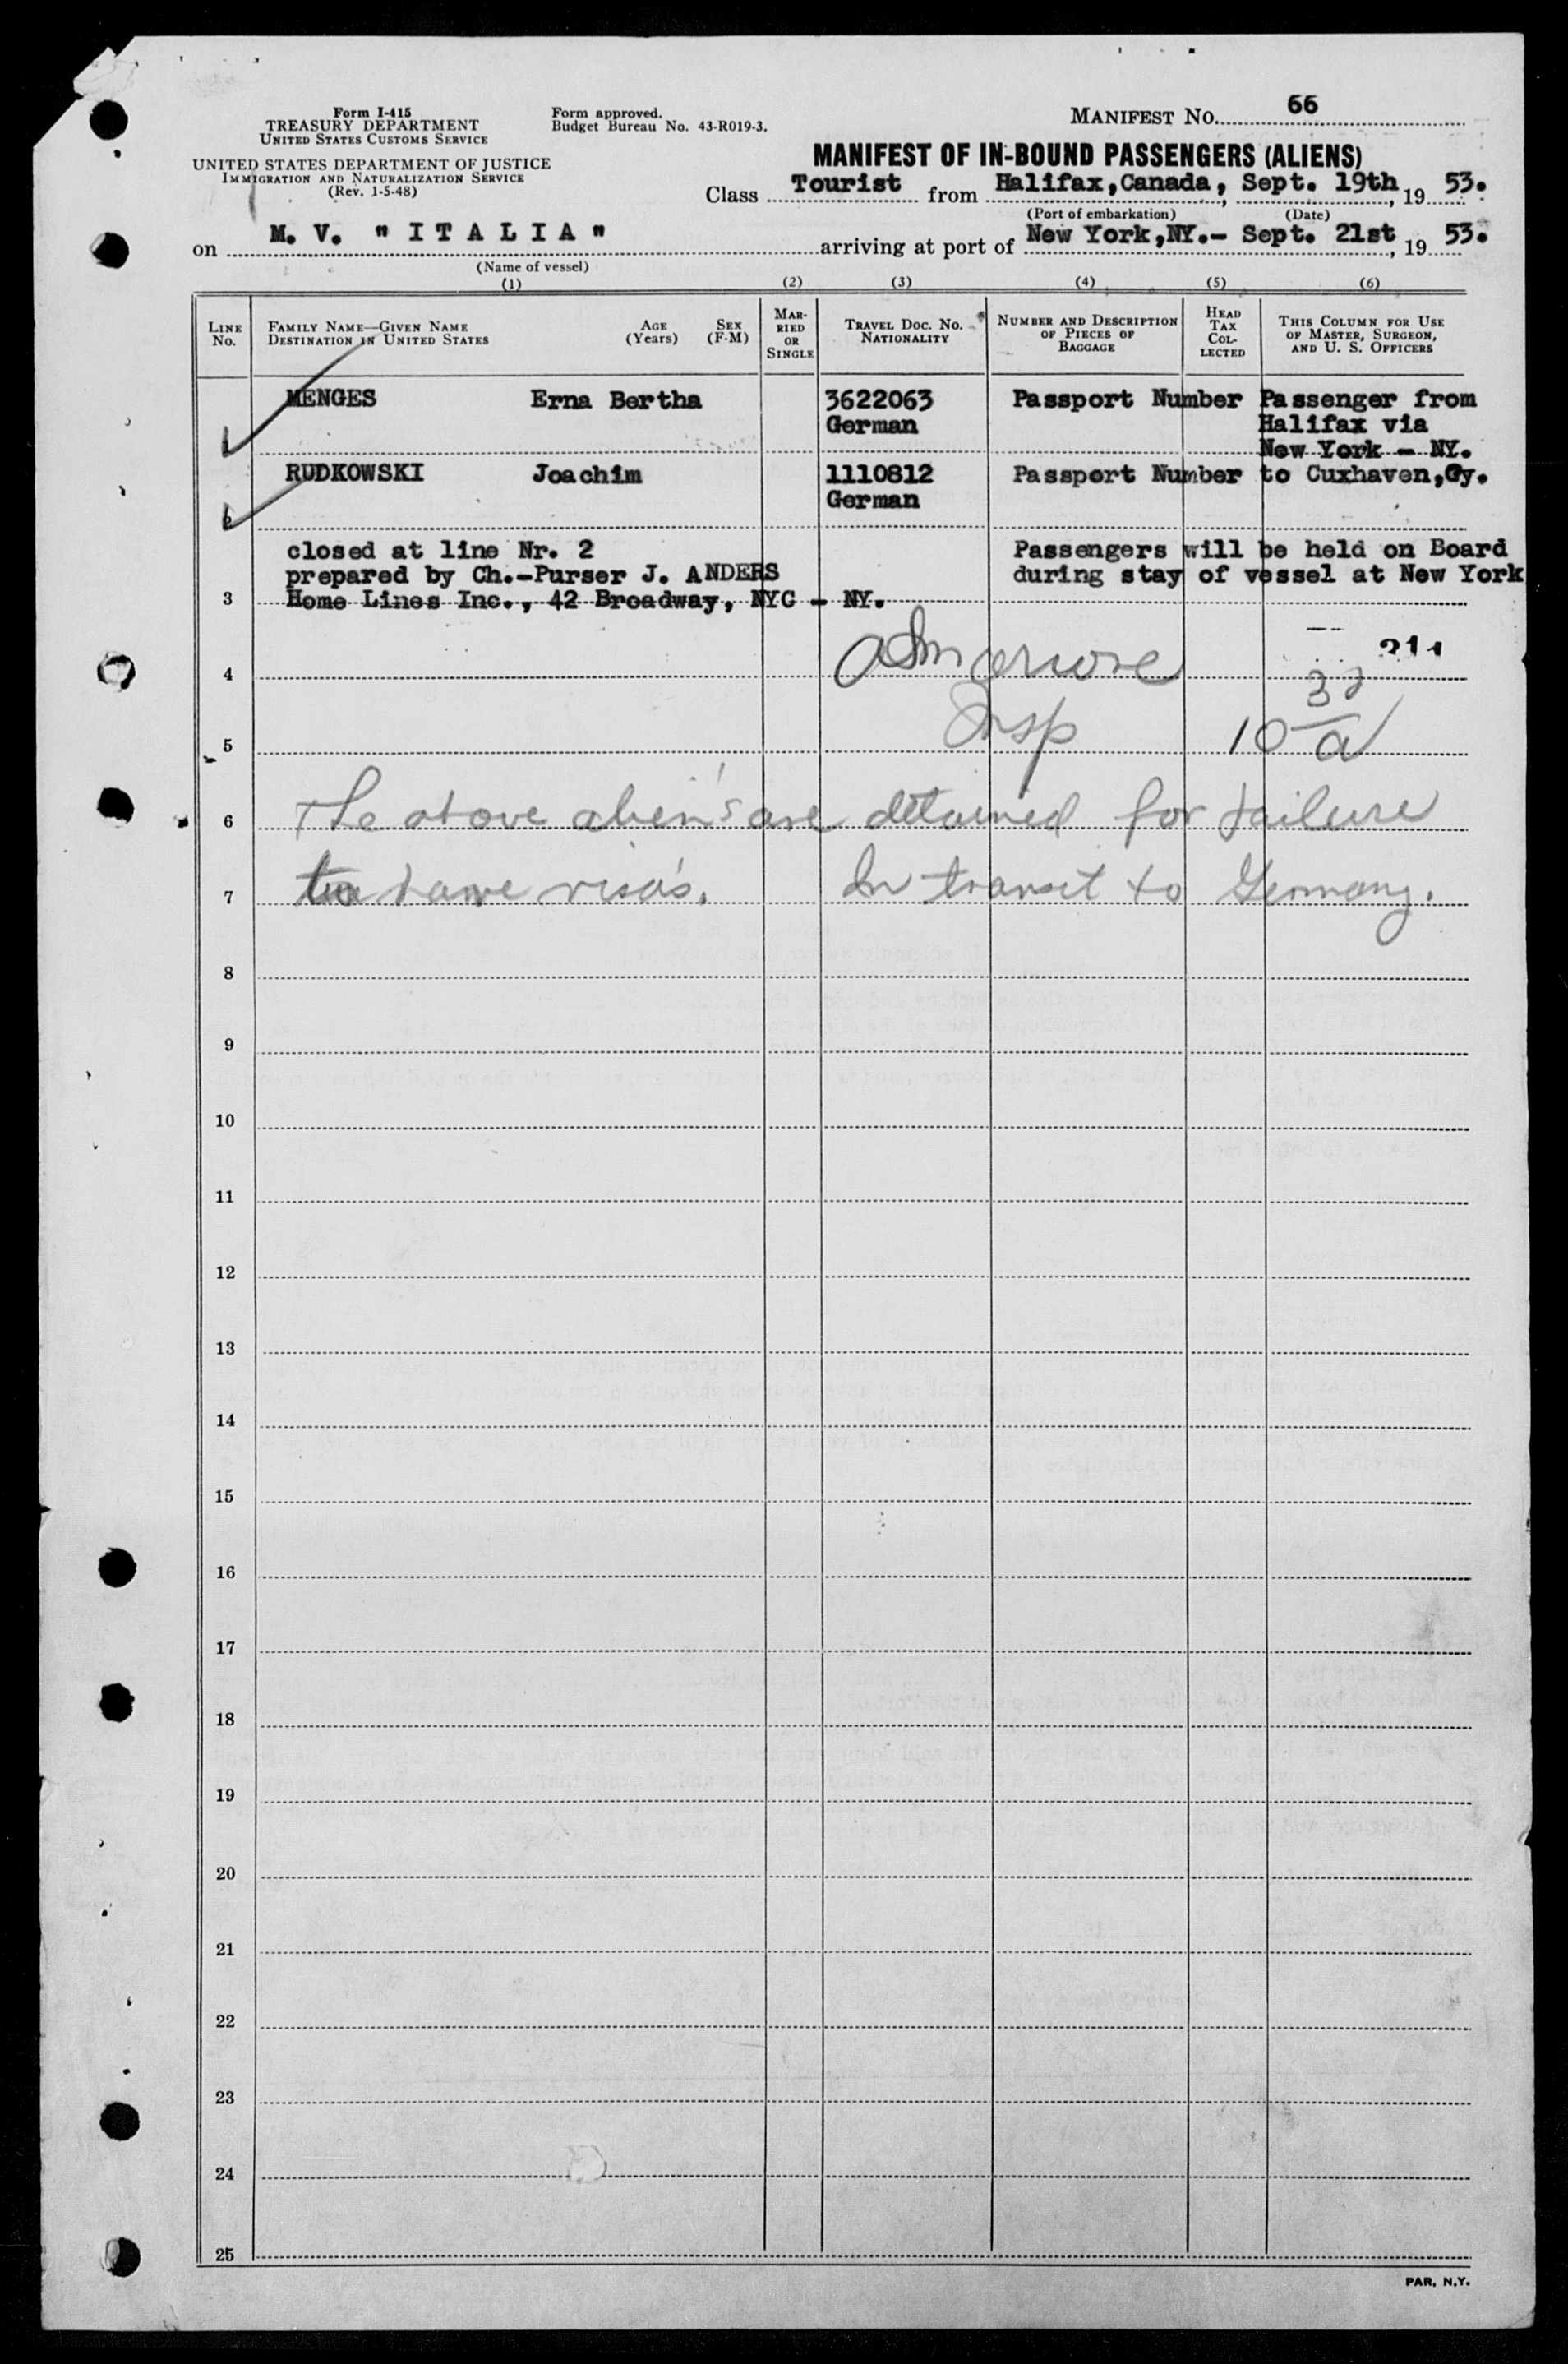 Form I-415
TREASURY DEPARTMENT
UNITED STATES CUSTOMS SERVICE
Form approved.
Budget Bureau No. 43-R019-3.
MANIFEST NO. 66
UNITED STATES DEPARTMENT OF JUSTICE
IMMIGRATION AND NATURALIZATION SERVICE
(Rev. 1-5-48)
MANIFEST OF IN-BOUND PASSENGERS (ALIENS)
Class Tourist from Halifax,Canada, Sept. 19th, 19 53.
(Port of embarkation) (Date)
on M. V. " I T A L I A " arriving at port of New York,NY.- Sept. 21st, 19 53.
(Name of vessel)
(1) (2) (3) (4) (5) (6)
LINE NO.
FAMILY NAME—GIVEN NAME
DESTINATION IN UNITED STATES
AGE (Years)
SEX (F-M)
MARRIED OR SINGLE
TRAVEL DOC. NO.
NATIONALITY
NUMBER AND DESCRIPTION
OF PIECES OF
BAGGAGE
HEAD TAX COLLECTED
THIS COLUMN FOR USE
OF MASTER, SURGEON,
AND U. S. OFFICERS
1 MENGES Erna Bertha 3622063 Passport Number Passenger from
German Halifax via
New York - NY.
2 RUDKOWSKI Joachim 1110812 Passport Number to Cuxhaven,Gy.
German
closed at line Nr. 2 Passengers will be held on Board
prepared by Ch.-Purser J. ANDERS during stay of vessel at New York
3 Home Lines Inc., 42 Broadway, NYC - NY.
211
4
32
5 Insp 10 a
6 The above alien's are detained for failure
7 to have visa's. In transit to Germany.
8
9
10
11
12
13
14
15
16
17
18
19
20
21
22
23
24
25
PAR. N.Y.